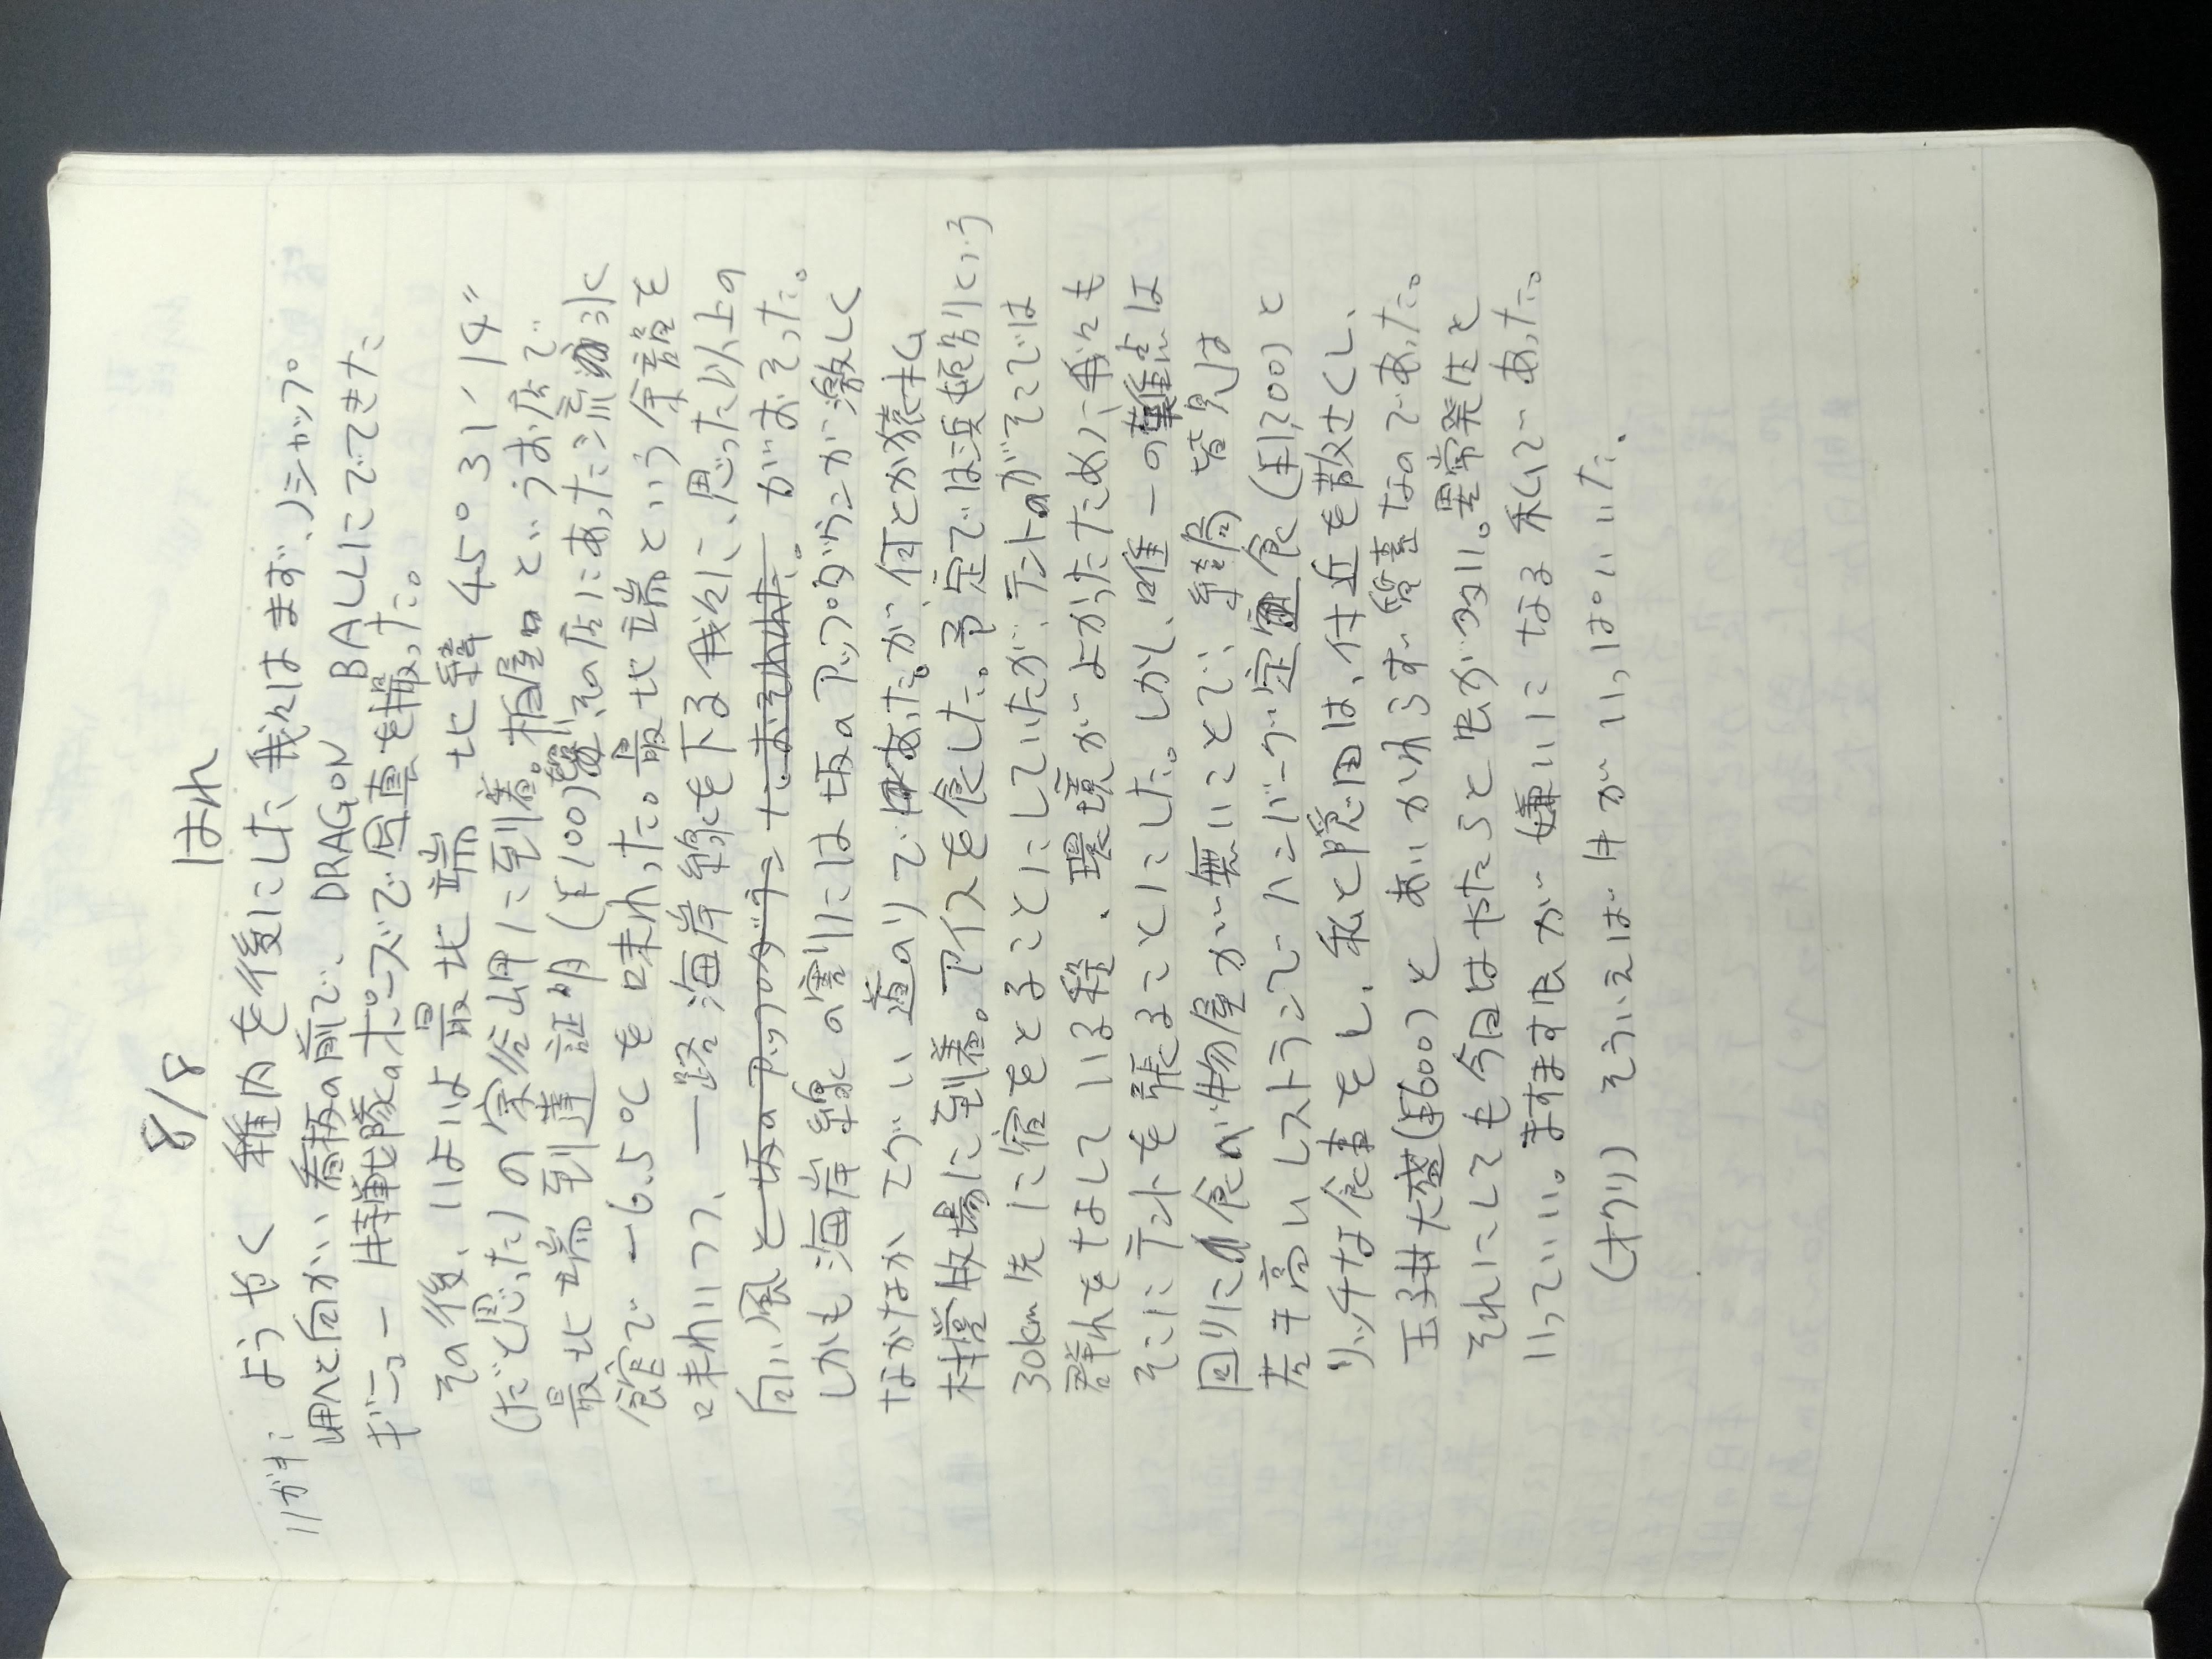 8/8 はれ
ようやく 稚内を後にした 我々はまず、ノシャップ
岬へと向かい、看板の前で、DRAGON BALLにでてきた
ギニュー特戦隊のポーズで写真を撮った。
その後、いよいよ最北端 北緯45°31′14″
(だと思った)の宗谷岬に到着。柏屋というお店で
最北端到達証明(¥100)を買い、その店にあった流氷
館で-6.5℃を味わった。最北端という余韻を
味わいつつ、一路海岸線を下る我々に、思った以上の
向い風と坂のアップダウン がおそった。
しかも海岸線の割りには坂のアップダウンが激しく
なかなか てごわい道のりであったが、何とか猿払
村営牧場に到着。アイスを食した。予定では浜頓別という
30km先に宿をとることにしていたが、テントがそこでは
群れをなしている程、環境がよかったために我々も
そこにテントを張ることにした。しかし、唯一の難点は
回りに食べ物屋が無いことで、結局 皆見は
若干高いレストランでハンバーグ定食(¥1,200)と
リッチな食事をし、私と隠田は、付近を散さくし、
玉子丼大盛(¥600)と あいかわらず質素なのであった。
それにしても今日はやたらと虫が多い。異常発生と
いっていい。ますます虫が嫌いになる私であった。
(オワリ) そういえば 牛がいっぱいいた。